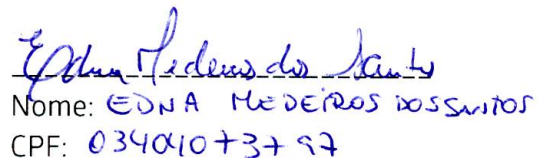 Edna Medeiros dos Santos
Nome: EDNA MEDEIROS DOS SANTOS
CPF: